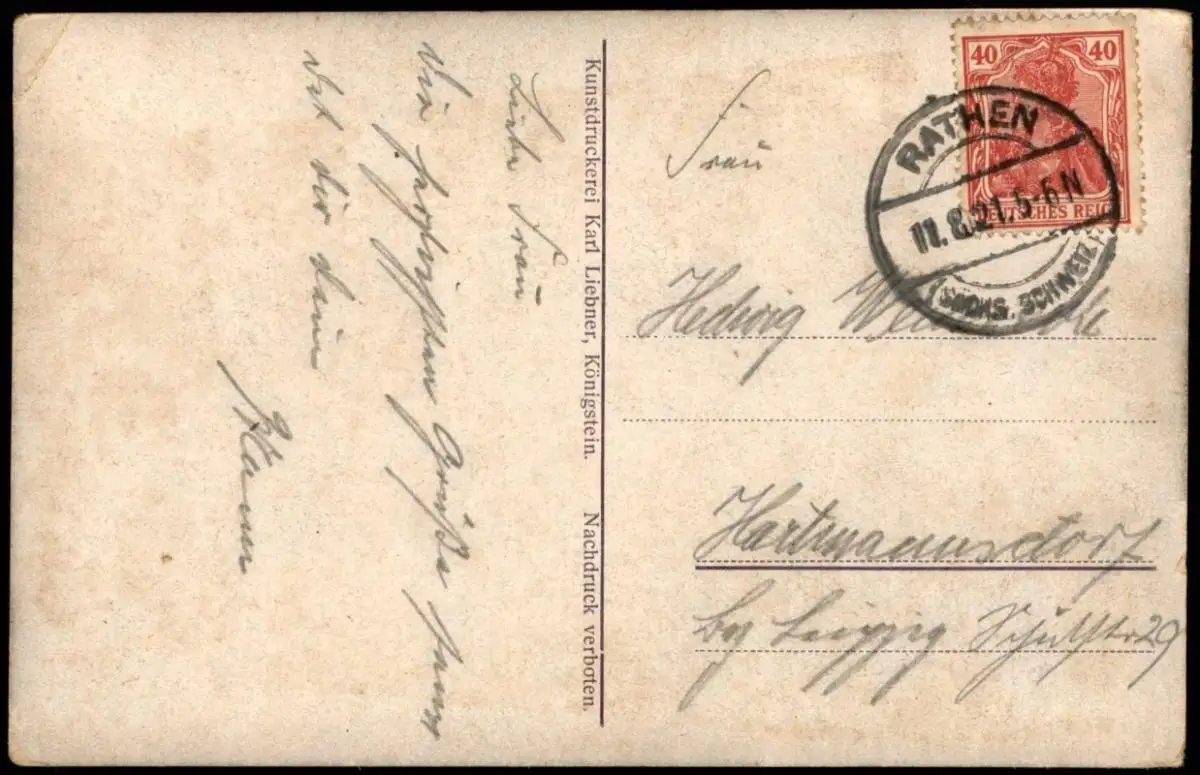 Liebe Frau
Die herzlichsten Grüße
dir dein
Kunstdruckerei Karl Liebner, Königstein. Nachdruck verboten.
40 40
DEUTSCHES REICH
RATHEN
11.8.21.5-6N
(SÄCHS. SCHWEIZ)
Frau
Hedwig
Hartmannsdorf
bey Leipzig Schulstr 29